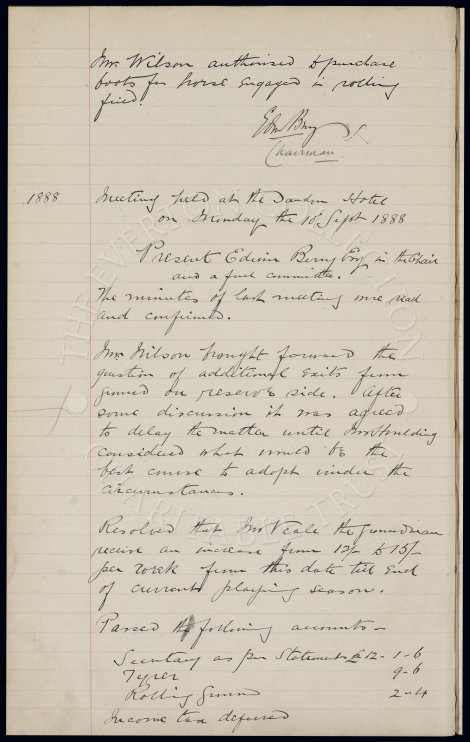 Mr. Wilson authorised to purchase
boots for horse engaged in rolling
field.
Edw Berry
Chairman.
1888 Meeting held at the Sandon Hotel
on Monday the 10th Sept 1888
Present Edwin Berry Esq in the Chair
and a full committee.
The minutes of last meeting were read
and confirmed.
Mr. Wilson brought forward the
question of additional exits from
ground on reserve side. After
some discussion it was agreed
to delay the matter until Mr Houlding
considered what would be the
best course to adopt under the
circumstances.
Resolved that Mr Veale the groundman
receive an increase from 12/- to 15/-
per week from this date till end
of current playing season.
Passed the following accounts -
Secretary as per Statement £12 - 1 - 6
Tyrer 9 - 6
Rolling Ground 2 - 4
Income tax deferred
THE EVERTON COLLECTION
CHARITABLE TRUST